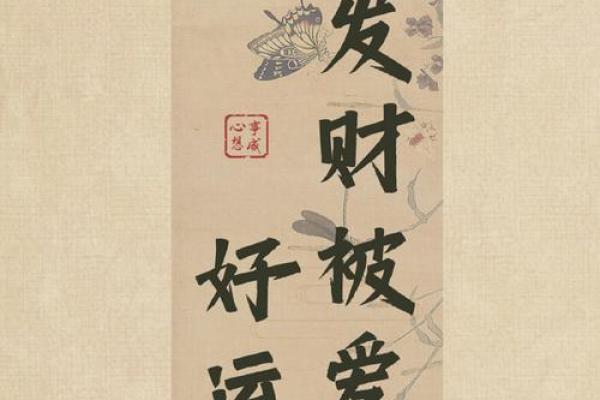 发财被爱
好运
心想
事成